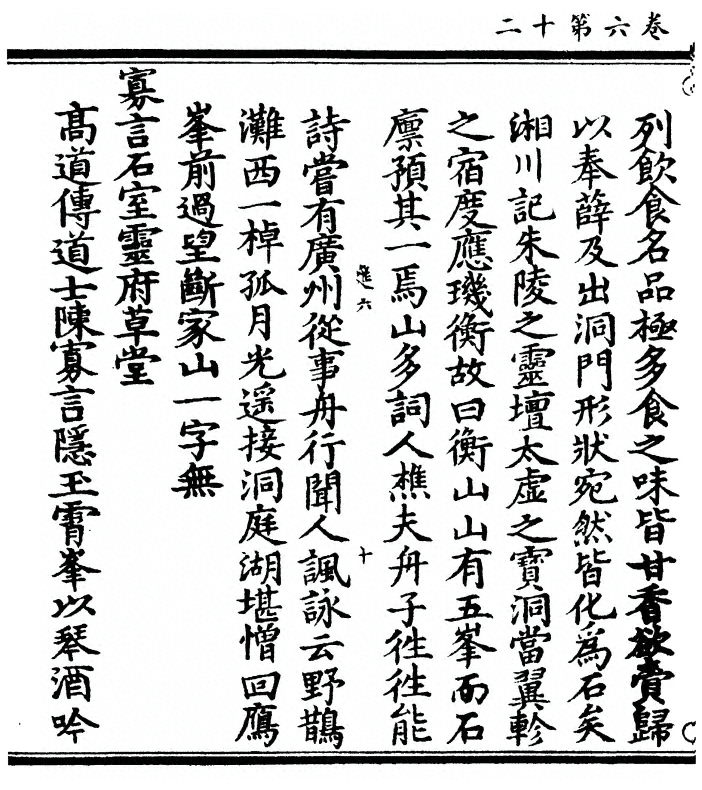 二十第六卷
列飲食名品極多食之味皆甘香欲賫歸
以奉薛及出洞門形狀宛然皆化為石矣
湘川記朱陵之靈壇太虛之寶洞當翼軫
之宿度應璣衡故曰衡山山有五峯而石
廪預其一焉山多詞人樵夫舟子徃徃能
進六
十
詩嘗有廣州從事舟行聞人諷詠云野鵲
灘西一棹孤月光遥接洞庭湖堪憎回鴈
峯前過望斷家山一字無
寡言石室靈府草堂
高道傳道士陳寡言隱玉霄峯以琴酒吟